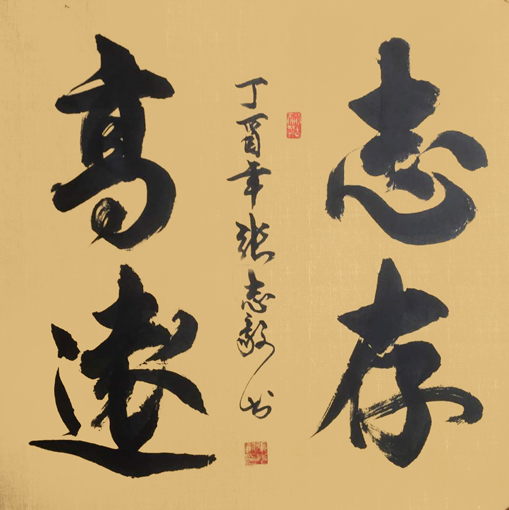 志存
高远
丁酉年张志毅书